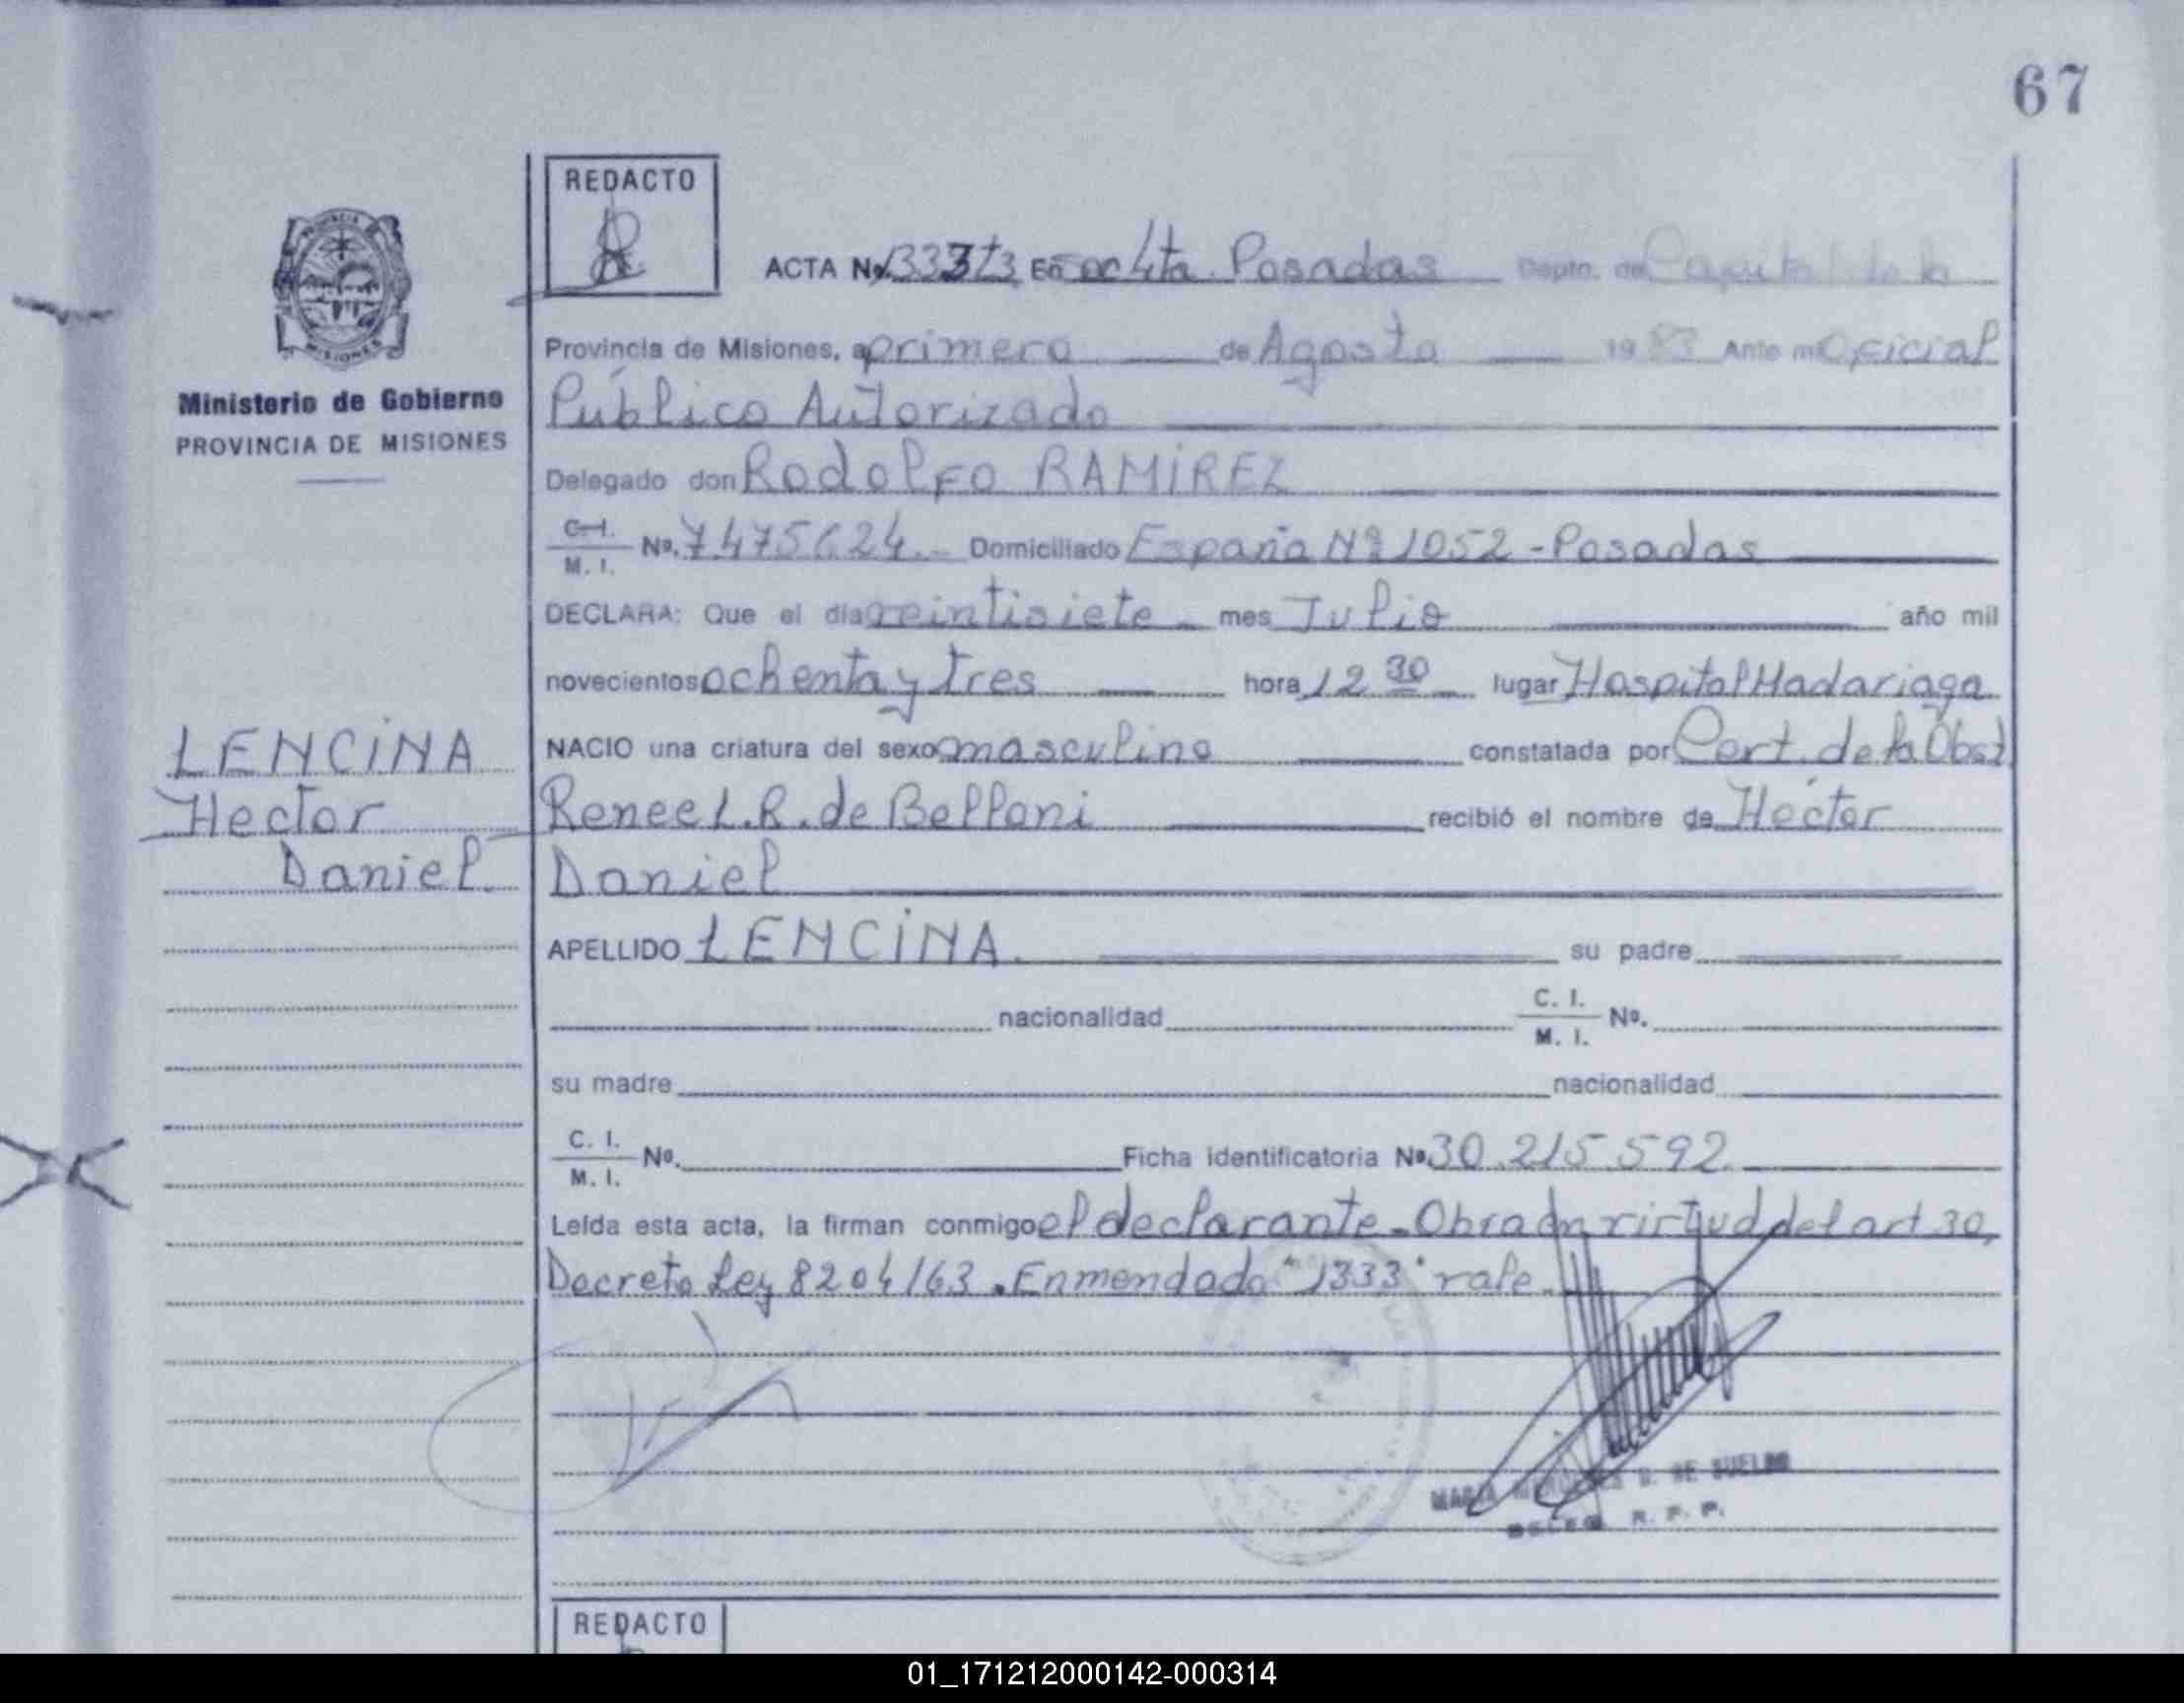 67
REDACTO
ACTA No 1333 t3 En Posadas Depto. de Capital de la
Provincia de Misiones, a primero de Agosto 1983 Ante mi Oficial
Público Autorizado
Delegado don Rodolfo RAMÍREZ
C.I. M. I. No. 7475624. Domiciliado España Nº 1052 - Posadas
DECLARA: Que el día veintisiete mes Julio año mil
novecientos ochenta y tres hora 12 30 lugar Hospital Madariaga
NACIO una criatura del sexo masculino constatada por Cert. de la Obst
Renee L. R. de Belloni recibió el nombre de Héctor
Daniel
APELLIDO LENCINA. su padre
nacionalidad C. I. M. I. No.
su madre nacionalidad
C. I. M. I. No. Ficha identificatoria No 30.215.592
Leída esta acta, la firman conmigo el declarante - Obra en virtud del art 30,
Decreto Ley 8204/63. Enmendado "1333" vale.
MARIA MERCEDES D. DE SUELDO
DELEG. R. P. P.
PROVINCIA DE MISIONES
Ministerio de Gobierno
PROVINCIA DE MISIONES
LENCINA
Hector
Daniel.
REDACTO
01_171212000142-000314